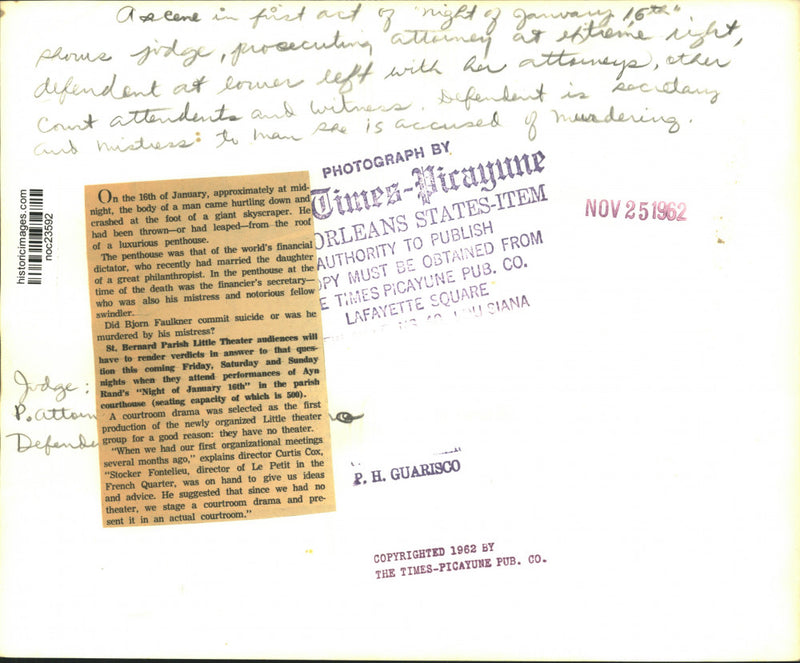 A scene in first act of "Night of January 16th"
shows judge, prosecuting attorney at extreme right,
defendent at lower left with her attorneys, other
court attendents and witness. Defendent is secretary
and mistress to man she is accused of murdering.
PHOTOGRAPH BY
Times-Picayune
ORLEANS STATES-ITEM
AUTHORITY TO PUBLISH
OPY MUST BE OBTAINED FROM
E TIMES PICAYUNE PUB. CO.
LAFAYETTE SQUARE
LOUISIANA
NOV 25 1962
historicimages.com
noc23592
On the 16th of January, approximately at mid-
night, the body of a man came hurtling down and
crashed at the foot of a giant skyscraper. He
had been thrown—or had leaped—from the roof
of a luxurious penthouse.
The penthouse was that of the world's financial
dictator, who recently had married the daughter
of a great philanthropist. In the penthouse at the
time of the death was the financier's secretary—
who was also his mistress and notorious fellow
swindler.
Did Bjorn Faulkner commit suicide or was he
murdered by his mistress?
St. Bernard Parish Little Theater audiences will
have to render verdicts in answer to that ques-
tion this coming Friday, Saturday and Sunday
nights when they attend performances of Ayn
Rand's "Night of January 16th" in the parish
courthouse (seating capacity of which is 500).
A courtroom drama was selected as the first
production of the newly organized Little theater
group for a good reason: they have no theater.
"When we had our first organizational meetings
several months ago," explains director Curtis Cox,
"Stocker Fontelieu, director of Le Petit in the
French Quarter, was on hand to give us ideas
and advice. He suggested that since we had no
theater, we stage a courtroom drama and pre-
sent it in an actual courtroom."
Judge:
P. Attorn
Defende
P. H. GUARISCO
COPYRIGHTED 1962 BY
THE TIMES-PICAYUNE PUB. CO.